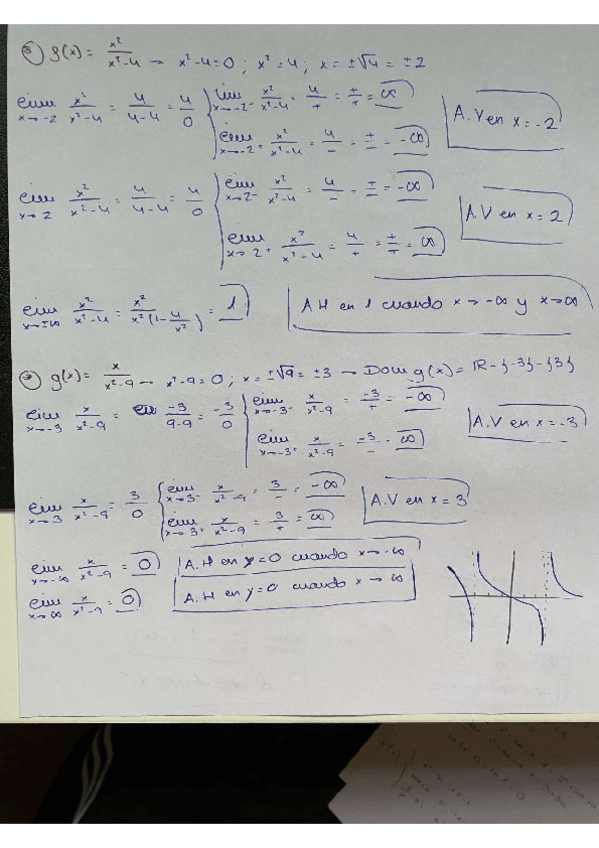 ③ f(x) = x²/(x²-4) → x²-4=0 ; x²=4, x=±√4 = ±2
lim x→-2 x²/(x²-4) = 4/(4-4) = 4/0 { lim x→-2⁻ x²/(x²-4) = 4/+ = +/+ = ∞
lim x→-2⁺ x²/(x²-4) = 4/- = +/- = -∞
A.V en x=-2
lim x→2 x²/(x²-4) = 4/(4-4) = 4/0 { lim x→2⁻ x²/(x²-4) = 4/- = +/- = -∞
lim x→2⁺ x²/(x²-4) = 4/+ = +/+ = ∞
A.V en x=2
lim x→±∞ x²/(x²-4) = x²/(x²(1-4/x²)) = 1
A H en 1 cuando x→-∞ y x→∞
g(x) = x/(x²-9) → x²-9=0 ; x=±√9 = ±3 → Dom g(x) = R-{-3}-{3}
lim x→-3 x/(x²-9) = -3/(9-9) = -3/0 { lim x→-3⁻ x/(x²-9) = -3/+ = -∞
lim x→-3⁺ x/(x²-9) = -3/- = ∞
A.V en x=-3
lim x→3 x/(x²-9) = 3/0 { lim x→3⁻ x/(x²-9) = 3/- = -∞
lim x→3⁺ x/(x²-9) = 3/+ = ∞
A.V en x=3
lim x→-∞ x/(x²-9) = 0
A.H en y=0 cuando x→-∞
lim x→∞ x/(x²-9) = 0
A.H en y=0 cuando x→∞